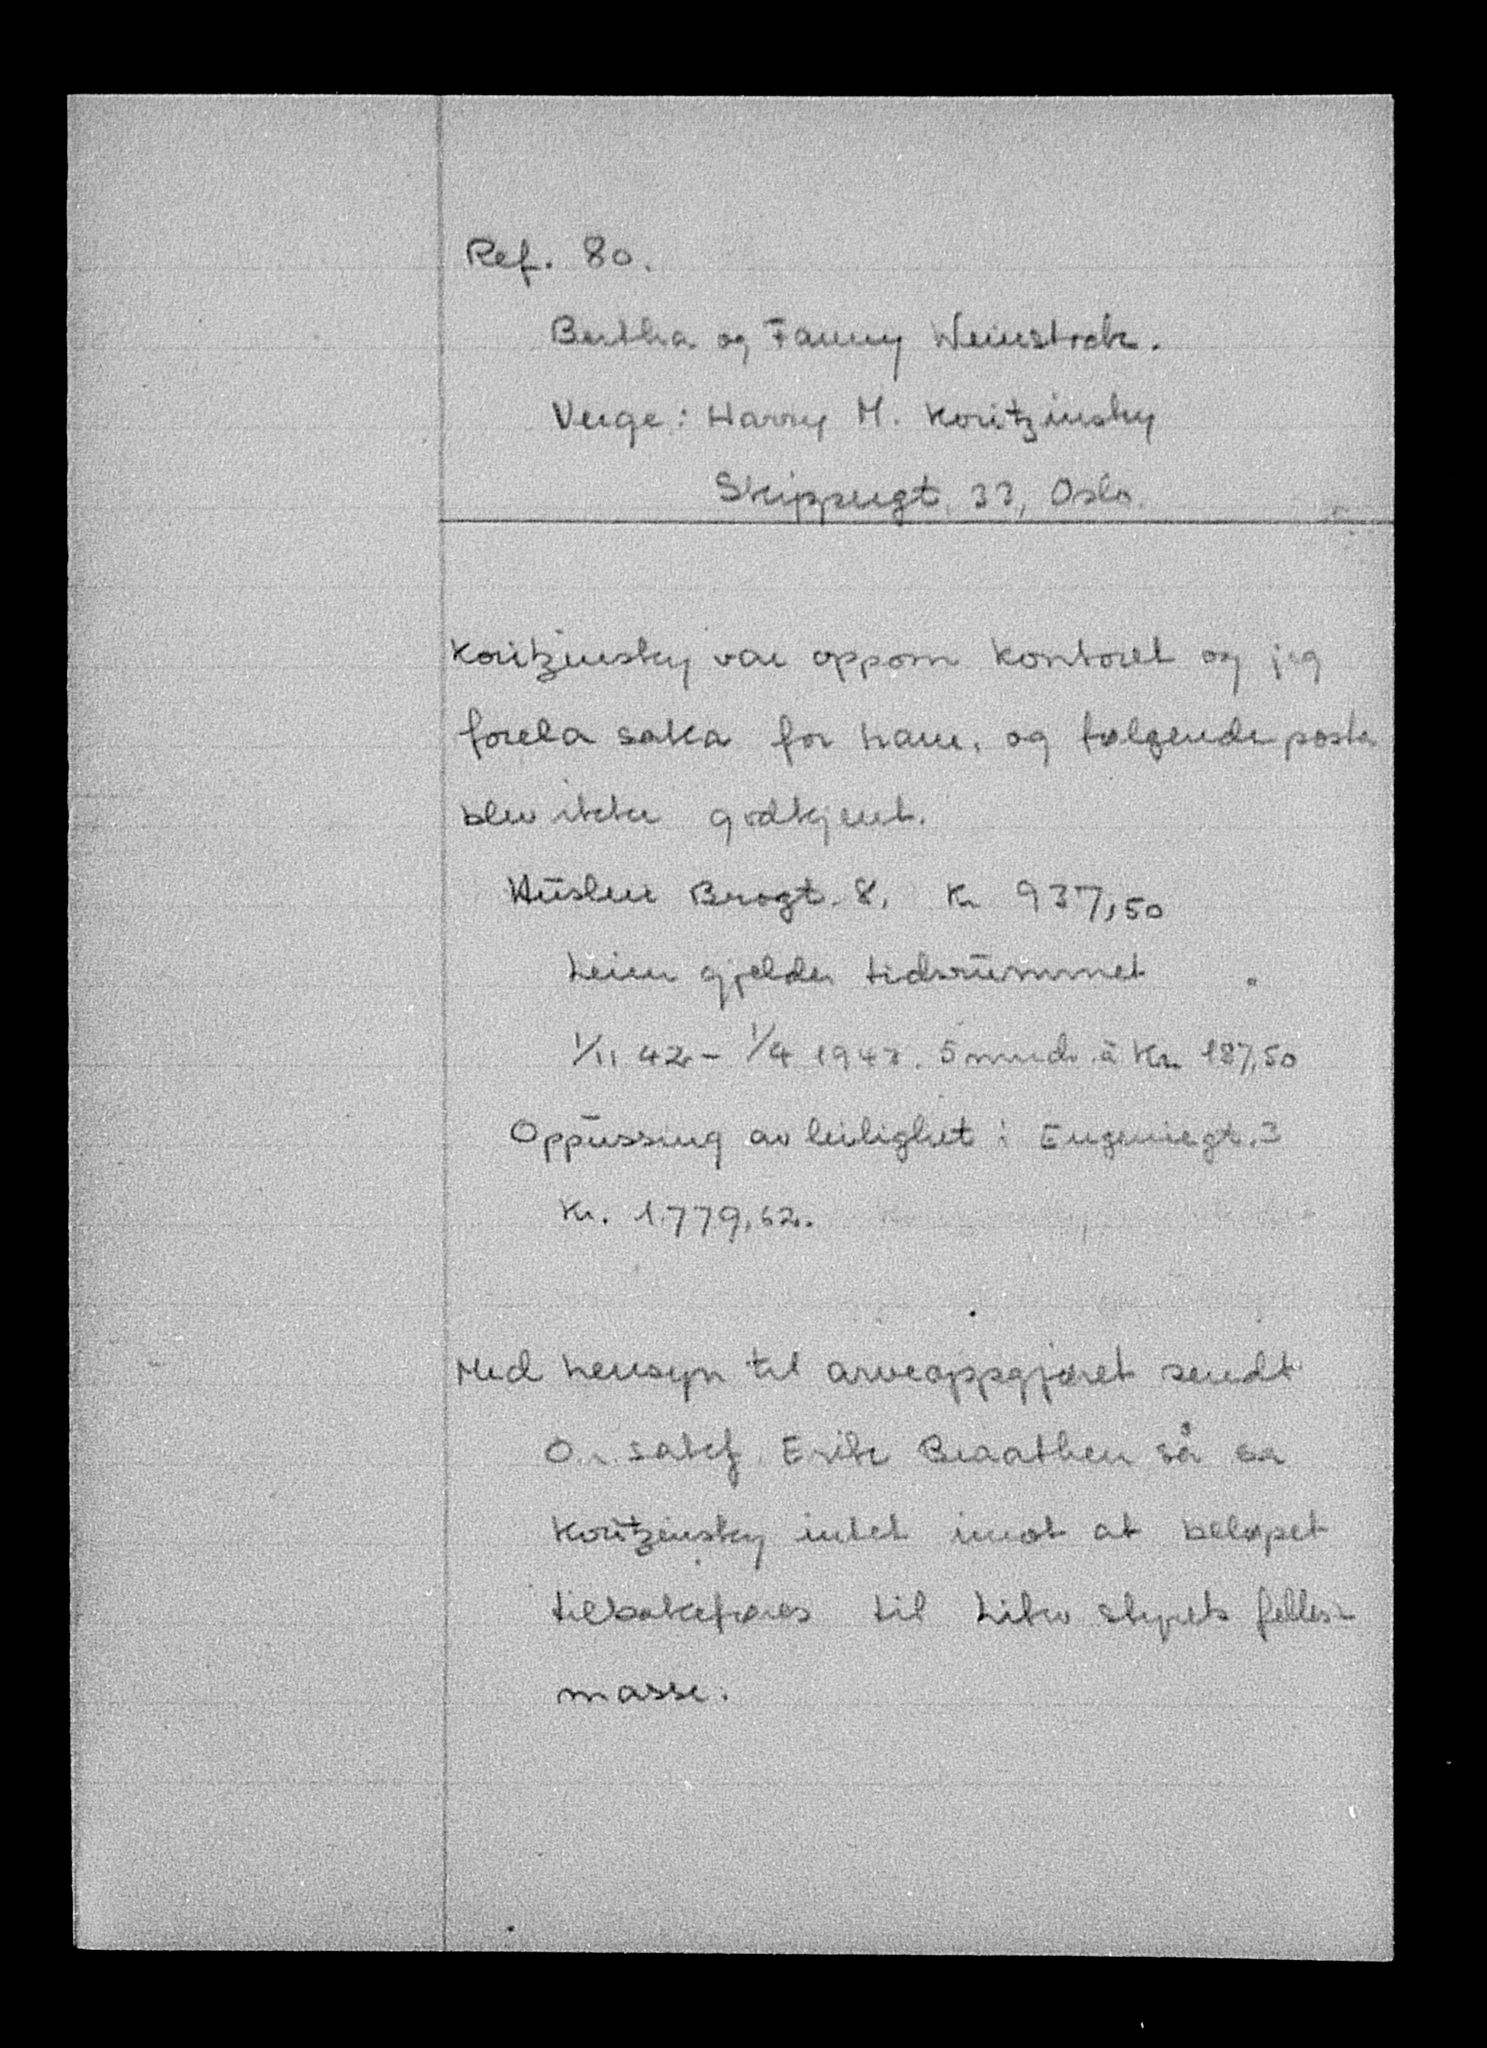 Ref. 80.
Bertha og Fanny Weinstock.
Verge: Harry M. Koritzinsky
Skippergt. 33, Oslo.
Koritzinsky var oppom kontoret og jeg
forela saka for ham, og følgende poster
blev ikke godkjent.
Husleie Brogt. 8, Kr 937,50
Leien gjelder tidsrummet
1/11 42 - 1/4 1943. 5 mndr. à Kr. 187,50
Oppussing av leilighet i Eugeniegt. 3
Kr. 1.779,62.
Med hensyn til arveoppgjøret sendt
O.r.sakf. Erik Braathen så sa
Koritzinsky intet imot at beløpet
tilbakeføres til Likv styrets felles-
masse.